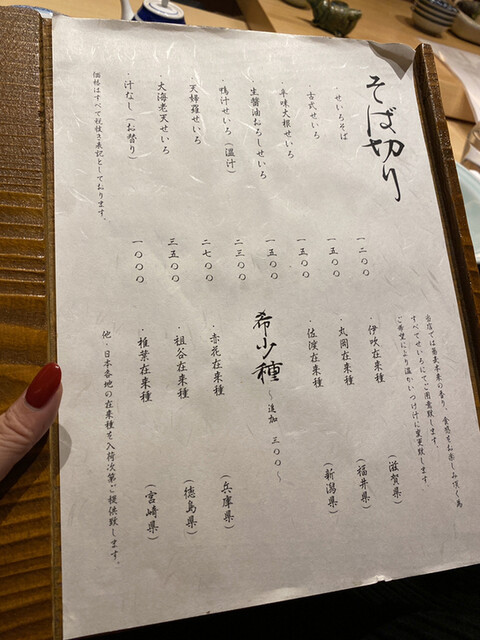 そば切り
・せいろそば 一二〇〇
・古式せいろ 一五〇〇
・辛味大根せいろ 一五〇〇
・生醤油おろしせいろ 一五〇〇
・鴨汁せいろ（温汁） 二三〇〇
・天婦羅せいろ 二七〇〇
・大海老天せいろ 三五〇〇
・汁なし（お替り） 一〇〇〇
価格はすべて税抜き表記としております。
当店では蕎麦本来の香り、食感をお楽しみ頂く為
すべてせいろにてご用意致します。
ご希望により温かいつけ汁に変更致します。
・伊吹在来種（滋賀県）
・丸岡在来種（福井県）
・佐渡在来種（新潟県）
希少種 〜追加 三〇〇〜
・赤花在来種（兵庫県）
・祖谷在来種（徳島県）
・椎葉在来種（宮崎県）
他、日本各地の在来種を入荷次第ご提供致します。